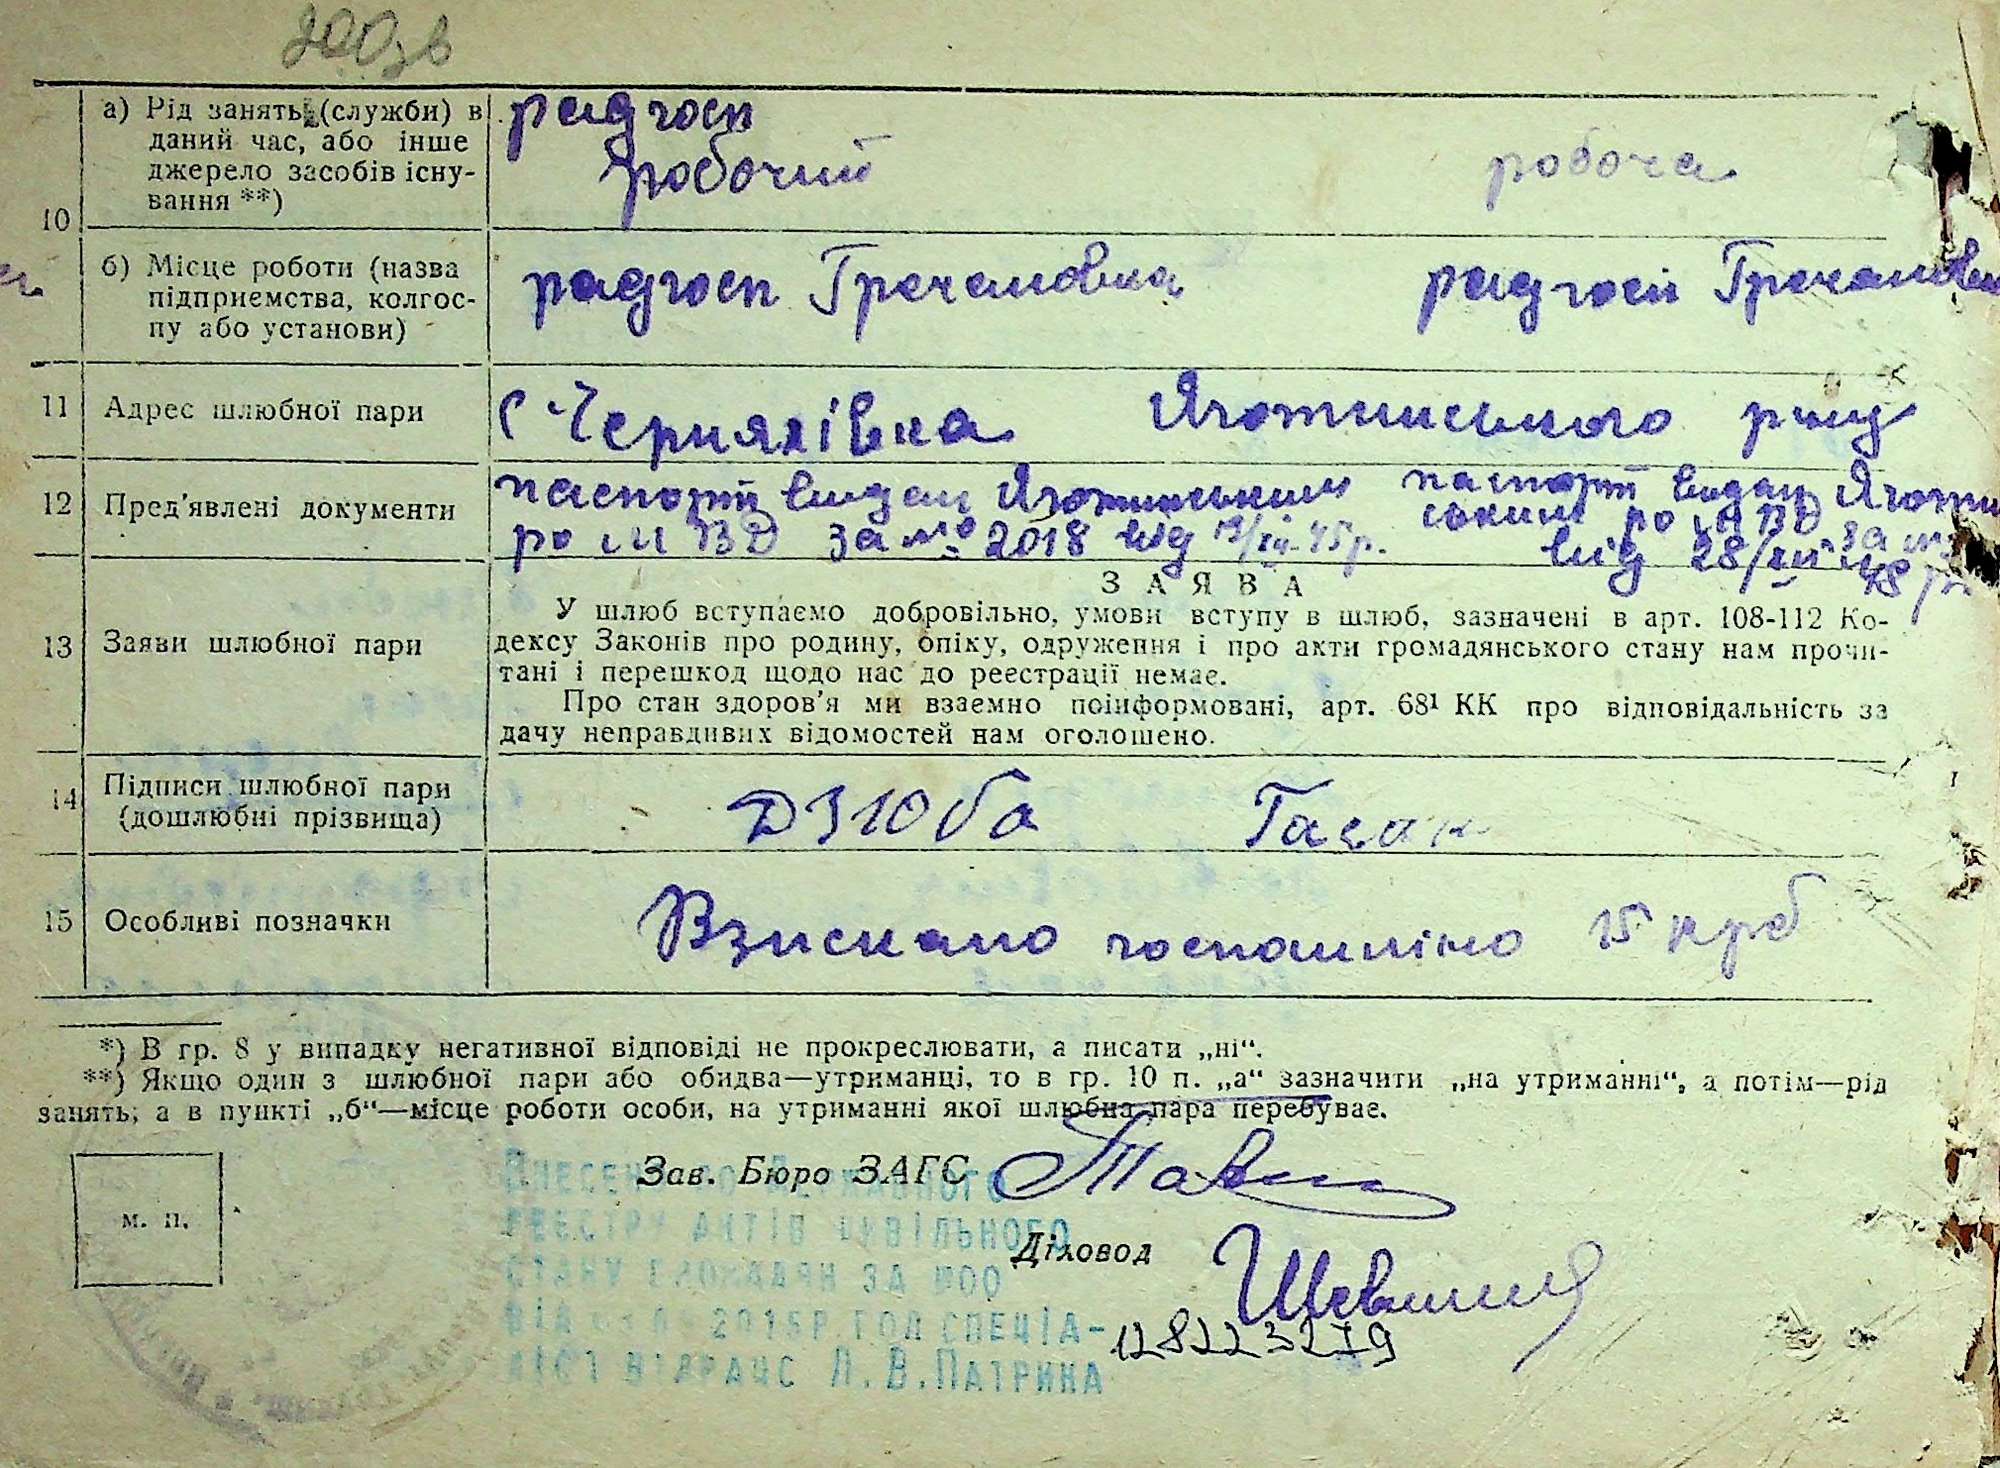 200зв
10
а) Рід занять (служби) в
даний час, або інше
джерело засобів існу-
вання **)
радгосп
робочий
робоча
б) Місце роботи (назва
підприємства, колгос-
пу або установи)
радгосп Гречановка
радгосп Гречановк
11
Адрес шлюбної пари
с Черняхівка Яготинського р-ну
12
Пред'явлені документи
паспорт видан Яготинським
ро МВД за № 2018 від
паспорт видан Яготин
ським ро МВД за №
від 28/XII 48 р.
13
Заяви шлюбної пари
ЗАЯВА
У шлюб вступаємо добровільно, умови вступу в шлюб, зазначені в арт. 108-112 Ко-
дексу Законів про родину, опіку, одруження і про акти громадянського стану нам прочи-
тані і перешкод щодо нас до реєстрації немає.
Про стан здоров'я ми взаємно поінформовані, арт. 68¹ КК про відповідальність за
дачу неправдивих відомостей нам оголошено.
14
Підписи шлюбної пари
(дошлюбні прізвища)
Дзюба
15
Особливі позначки
Взискано госпошліно 15 крб
*) В гр. 8 у випадку негативної відповіді не прокреслювати, а писати „ні“.
**) Якщо один з шлюбної пари або обидва—утриманці, то в гр. 10 п. „а“ зазначити „на утриманні“, а потім—рід
занять; а в пункті „б“—місце роботи особи, на утриманні якої шлюбна пара перебуває.
м. п.
Зав. Бюро ЗАГС
Діловод
Внесено до Державного
реєстру актів цивільного
стану громадян за №00
від 2015р. гол.спеціа-
ліст вДРАЦС Л.В.Патрина